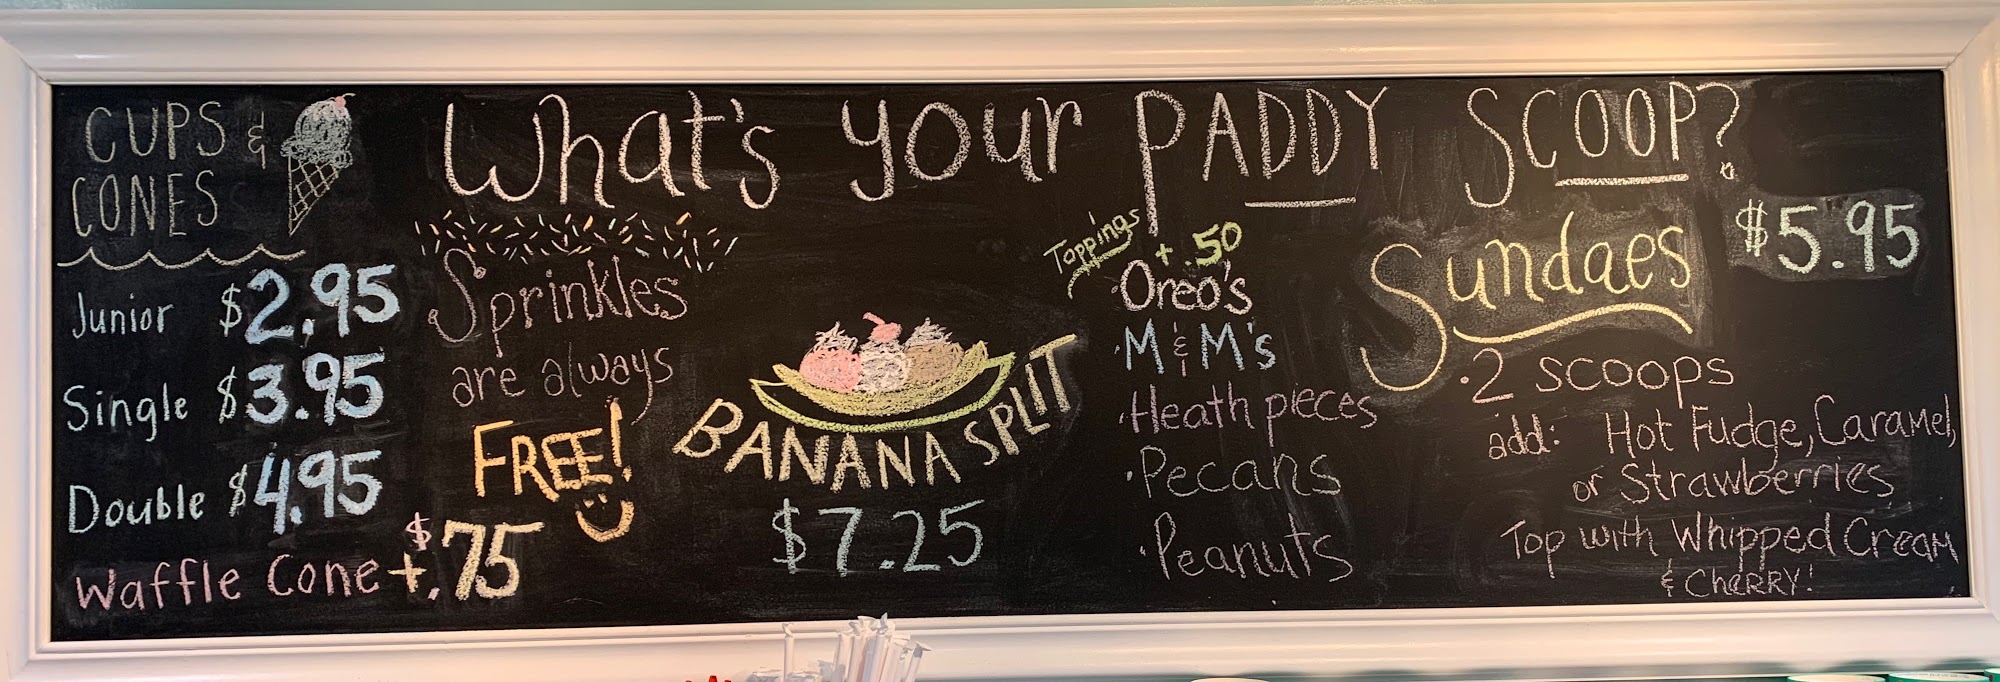 What's your PADDY SCOOP?
CUPS &
CONES
Junior $2.95
Single $3.95
Double $4.95
Waffle Cone +$.75
Sprinkles
are always
FREE!
BANANA SPLIT
$7.25
Toppings
+.50
·Oreo's
·M&M's
·Heath pieces
·Pecans
·Peanuts
Sundaes $5.95
·2 scoops
add: Hot Fudge, Caramel,
or Strawberries
Top with Whipped Cream
& CHERRY!